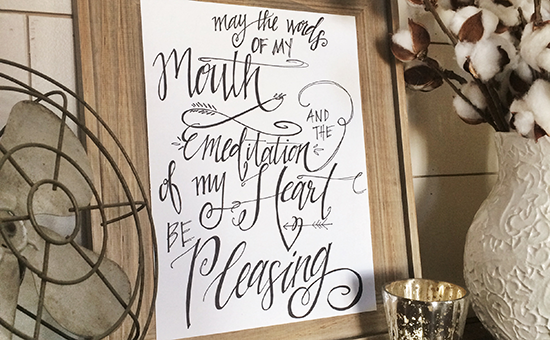 may the words
OF MY
Mouth
AND
THE
& meditation
of my Heart
BE
Pleasing